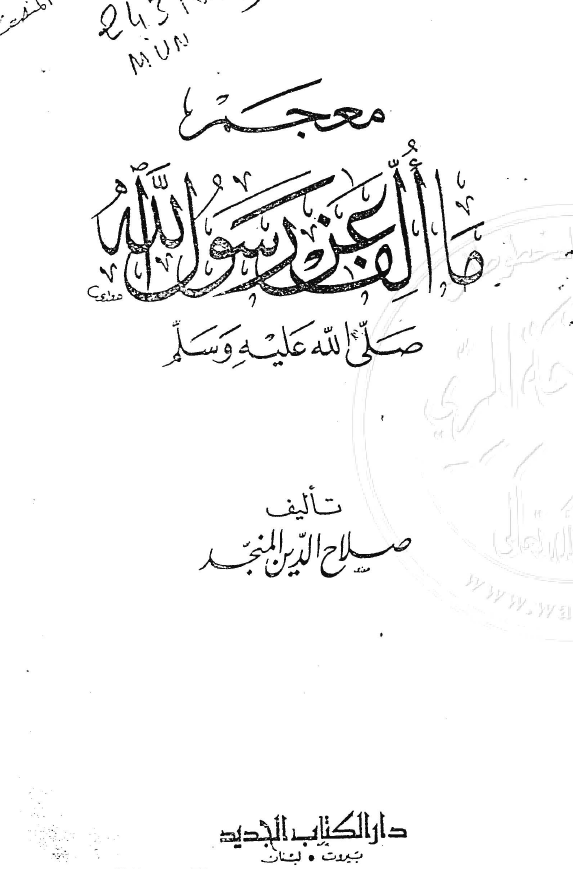 243
MUN
معجم
مَا أُلِّفَ عَن رَسُولِ اللهِ
صَلَّى اللهُ عَلَيْهِ وَسَلَّم
تأليف
صلاح الدّين المنجّد
دار الكتاب الجديد
بيروت • لبنان
www.wa